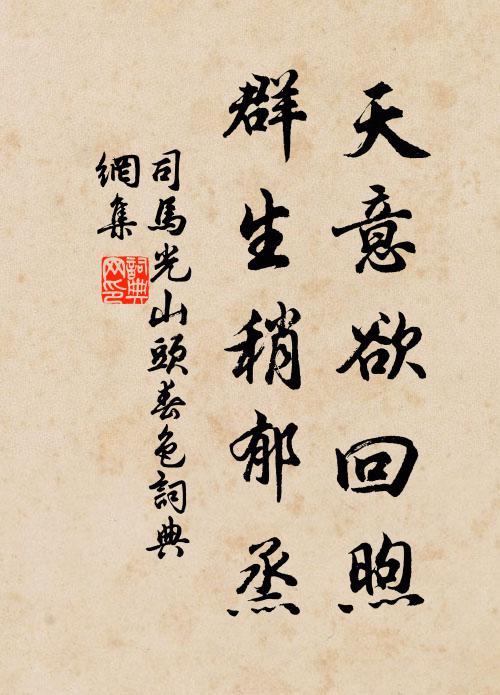 天意欲回煦
群生稍郁蒸
司馬光山頭春色詞典
網集
詞典
网印